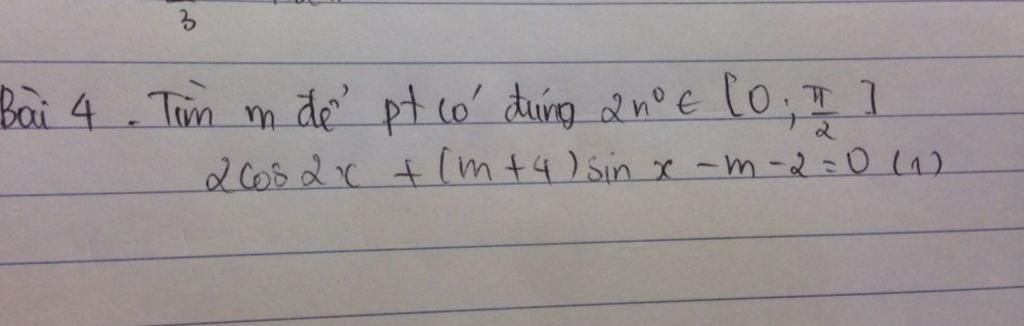 3
Bài 4. Tìm m để pt có đúng 2n⁰ ∈ [0; π/2]
2cos2x + (m+4)sin x - m - 2 = 0 (1)